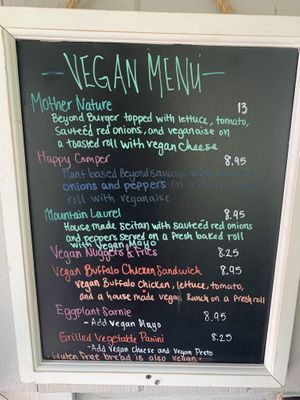 — VEGAN MENU —
Mother Nature 13
Beyond Burger topped with lettuce, tomato,
Sauteed red onions, and veganaise on
a toasted roll with vegan cheese
Happy Camper 8.95
Plant based Beyond sausage with
onions and peppers on a
roll with veganaise
Mountain Laurel 8.95
House made seitan with sauteed red onions
and peppers served on a fresh baked roll
with Vegan Mayo
Vegan Nuggets & Fries 8.25
Vegan Buffalo Chicken Sandwich 8.95
vegan Buffalo chicken, lettuce, tomato,
and a house made vegan Ranch on a fresh roll
Eggplant Sarnie 8.95
- Add vegan Mayo
Grilled Vegetable Panini 8.25
- Add vegan Cheese and vegan Pesto
• Gluten Free bread is also vegan •